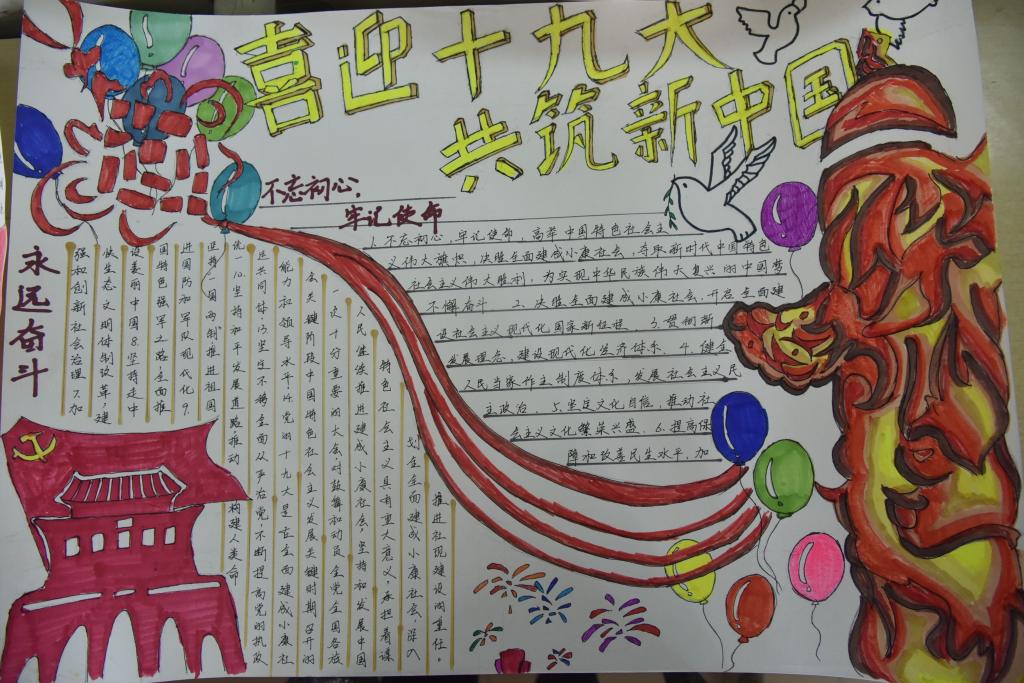 喜迎十九大
共筑新中国
不忘初心,
牢记使命
1.不忘初心,牢记使命,高举中国特色社会主
义伟大旗帜,决胜全面建成小康社会,夺取新时代中国特色
社会主义伟大胜利,为实现中华民族伟大复兴的中国梦
不懈奋斗 2.决胜全面建成小康社会,开启全面建
设社会主义现代化国家新征程。3.贯彻新
发展理念,建设现代化经济体系。4.健全
人民当家作主制度体系,发展社会主义民
主政治。5.坚定文化自信,推动社
会主义文化繁荣兴盛。6.提高保
障和改善民生水平,加
永远奋斗
强和创新社会治理7.加
快生态文明体制改革,建
设美丽中国8.坚持走中
国特色强军之路,全面推
进国防和军队现代化9.
坚持一国两制推进祖国
统一10.坚持和平发展道路推动构建人类命
运共同体.13.坚定不移全面从严治党,不断提高党的执政
能力和领导水平14.党的十九大是在全面建成小康社
会关键阶段中国特色社会主义发展关键时期召开的
一次十分重要的大会,对鼓舞和动员全党全国各族
人民继续推进建成小康社会,坚持和发展中国
特色社会主义具有重大意义,承担着谋
划全全面建成小康社会,深入
推进社现建设的重任。